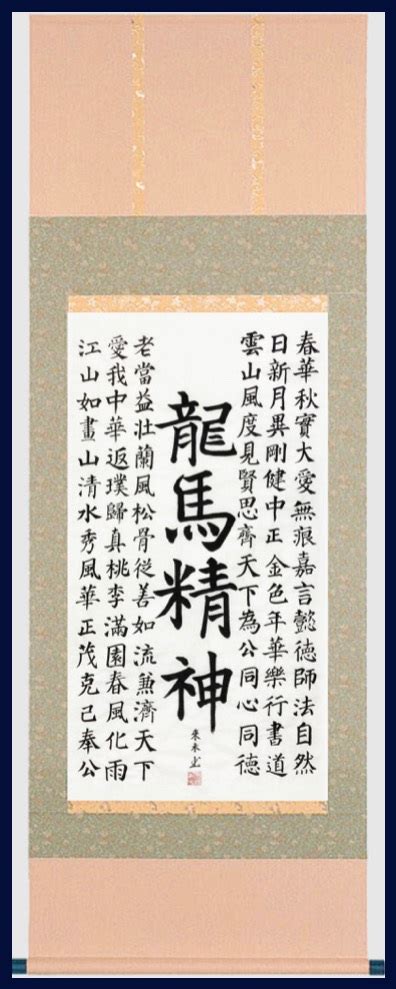 春華秋實大愛無痕嘉言懿德師法自然
日新月異剛健中正金色年華樂行書道
雲山風度見賢思齊天下為公同心同德
龍馬精神
老當益壯蘭風松骨從善如流兼濟天下
愛我中華返璞歸真桃李滿園春風化雨
江山如畫山清水秀風華正茂克己奉公